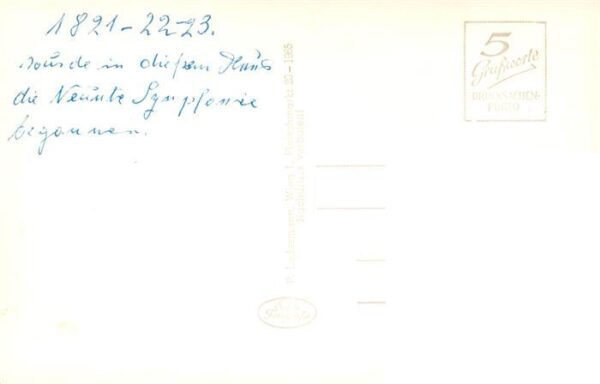 1821-22-23.
wurde in diesem Haus
die Neunte Symphonie
begonnen.
5
Grußworte
DRUCKSACHEN-
PORTO
P. Ledermann, Wien I., Fleischmarkt 20 - 1955
Nachdruck verboten!